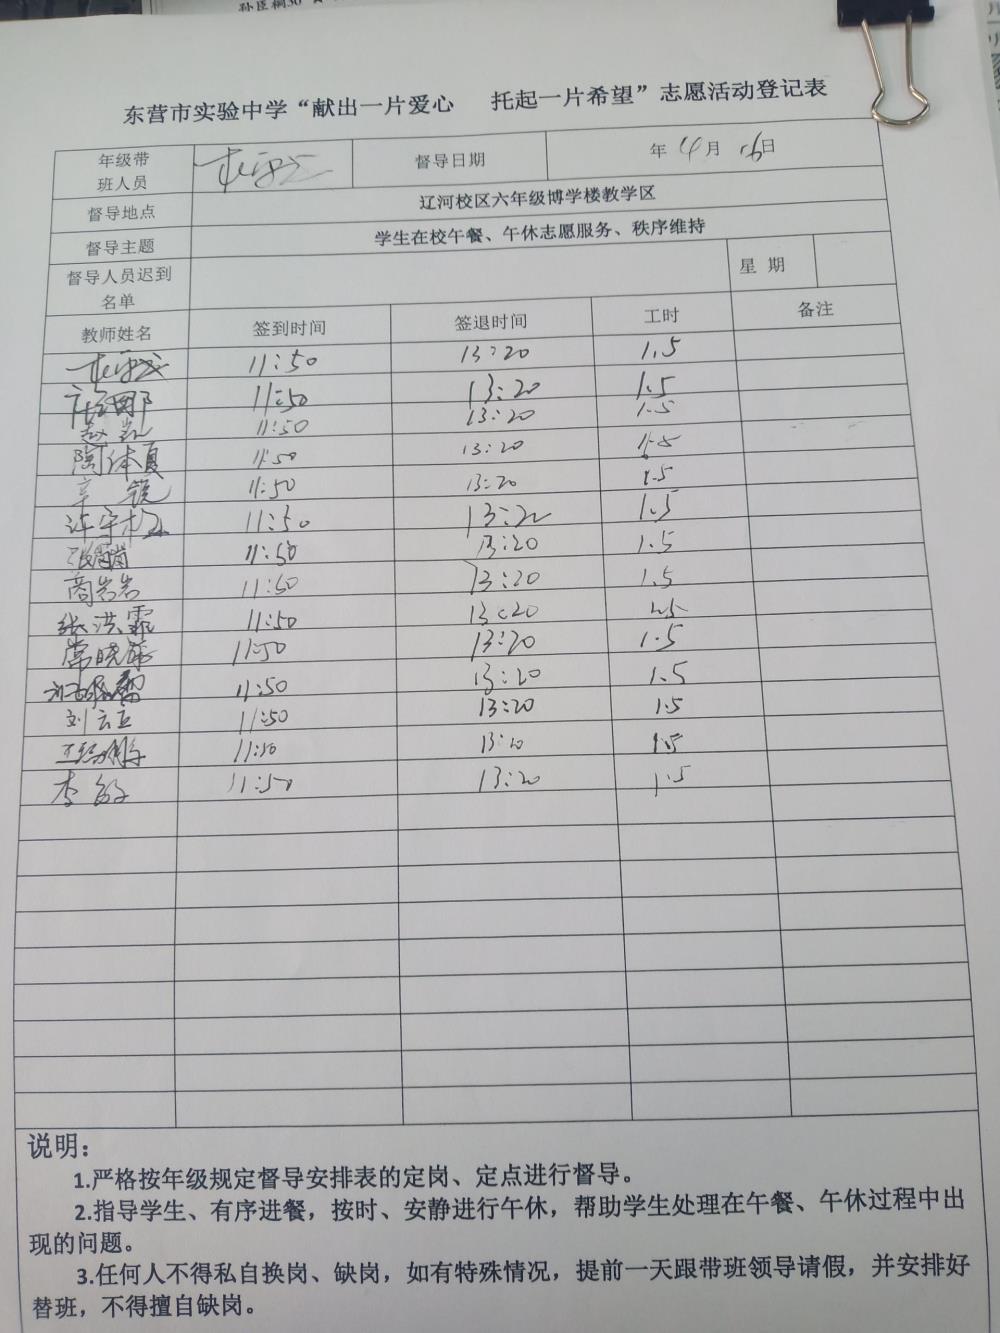 东营市实验中学“献出一片爱心 托起一片希望”志愿活动登记表
年级带班人员 督导日期 年 4月 16日
督导地点 辽河校区六年级博学楼教学区
督导主题 学生在校午餐、午休志愿服务、秩序维持
督导人员迟到名单 星 期
教师姓名 签到时间 签退时间 工时 备注
11:50 13:20 1.5
11:50 13:20 1.5
赵凯 11:50 13:20 1.5
陶体夏 11:50 13:20 1.5
11:50 13:20 1.5
11:50 13:20 1.5
11:50 13:20 1.5
商岩岩 11:50 13:20 1.5
张洪霏 11:50 13:20 1.5
常晓华 11:50 13:20 1.5
11:50 13:20 1.5
刘云亚 11:50 13:20 1.5
1.5
李敏 11:50 13:20 1.5
说明:
1.严格按年级规定督导安排表的定岗、定点进行督导。
2.指导学生、有序进餐，按时、安静进行午休，帮助学生处理在午餐、午休过程中出
现的问题。
3.任何人不得私自换岗、缺岗，如有特殊情况，提前一天跟带班领导请假，并安排好
替班，不得擅自缺岗。